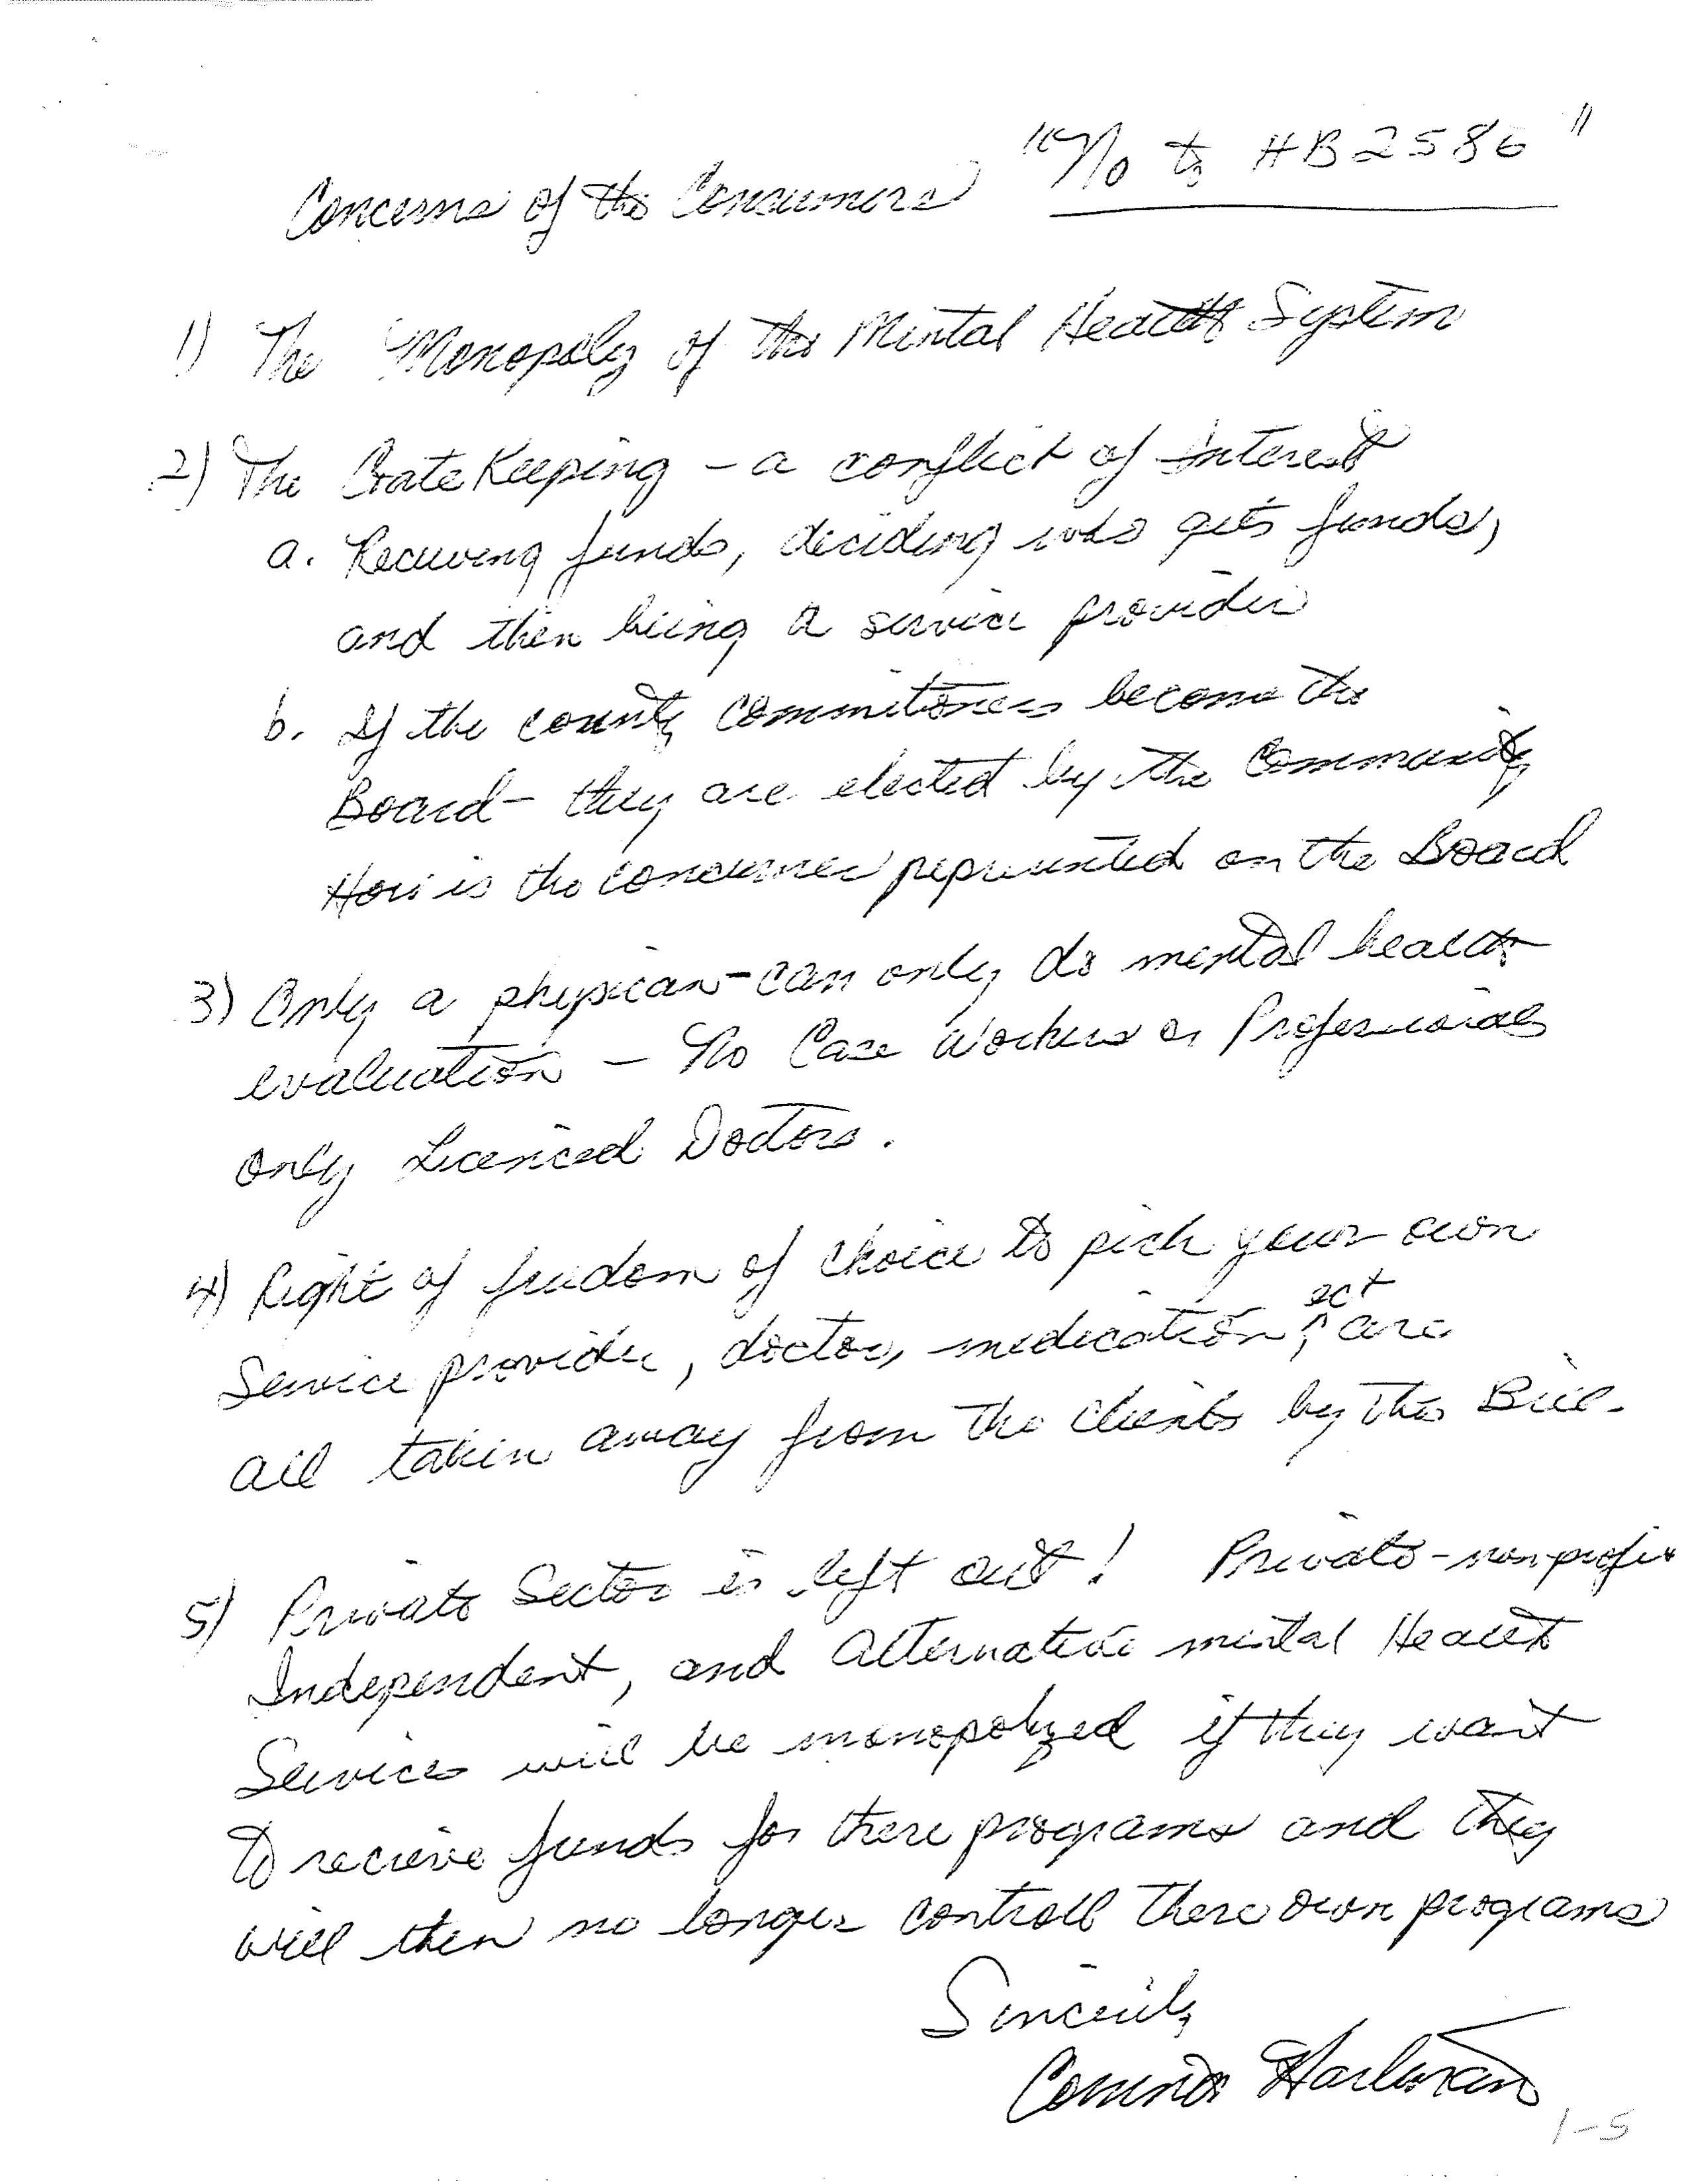 "No to HB2586"
Concerns of the Consumers
1) The Monopoly of the Mental Health System
2) The Gate Keeping - a conflict of Interest
a. Recieving funds, deciding who gets funds,
and then being a service provider
b. If the county commitioners become the
Board - they are elected by the Community
How is the concumer represented on the Board
3) Only a physican - can only do mental health
evaluation - No Case Workers or Professionals
only Licenced Doctors.
4) Right of freedom of choice to pick your own
ect
Service provider, doctor, medication, ^ are
all taken away from the clients by this Bill.
5) Private Sector is left out! Private - nonprofit
Independent, and Alternative mental Health
Services will be monopolyzed if they want
to recieve funds for there programs and they
will then no longer controll there own programs
Sincerily
1-5